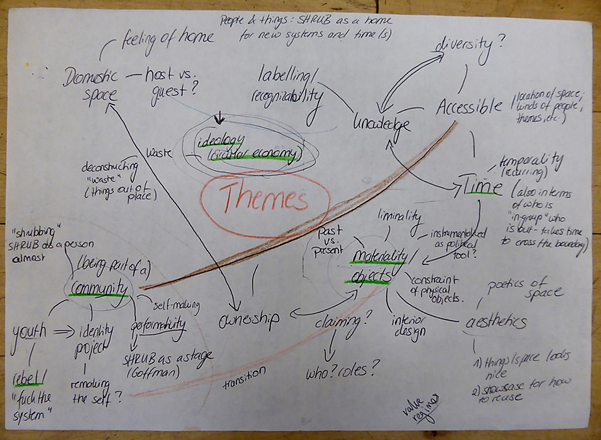 People & things: SHRUB as a home
for new systems and time(s)
feeling of home
Domestic
space
host vs.
guest?
labelling/
recognizability
diversity?
Accessible
(location of space,
kinds of people,
themes, etc)
knowledge
ideology
(circular economy)
waste
deconstructing
"waste"
(things out of
place)
Themes
Time
temporality
(recurring)
(also in terms
of who is
"in-group" who
is out - takes time
to cross the boundary)
liminality
past
vs.
present
instrumentalized
as political
tool?
materiality/
objects
constraint
of physical
objects.
"shrubbing"
SHRUB as a person
almost
(being part of a)
community
self-making
performativity
SHRUB as a stage
(Goffman)
youth
identity
project
rebel/
"fuck the
system"
remaking
the self?
ownership
claiming?
who? roles?
transition
interior
design
poetics of
space
aesthetics
1) things/space looks
nice
2) showcase for how
to reuse
value
regimes